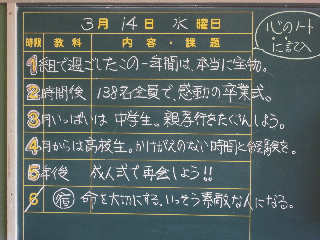 3月 14日 水 曜日
心のノートに記入
時限 教科 内容・課題
1組で過ごしたこの一年間は、本当に宝物。
2時間後 138名全員で、感動の卒業式。
3月いっぱいは 中学生。親孝行をたくさんしよう。
4月からは高校生。かけがえのない時間と経験を。
5年後 成人式で再会しよう!!
6 宿 命を大切にする。いっそう素敵な人になる。